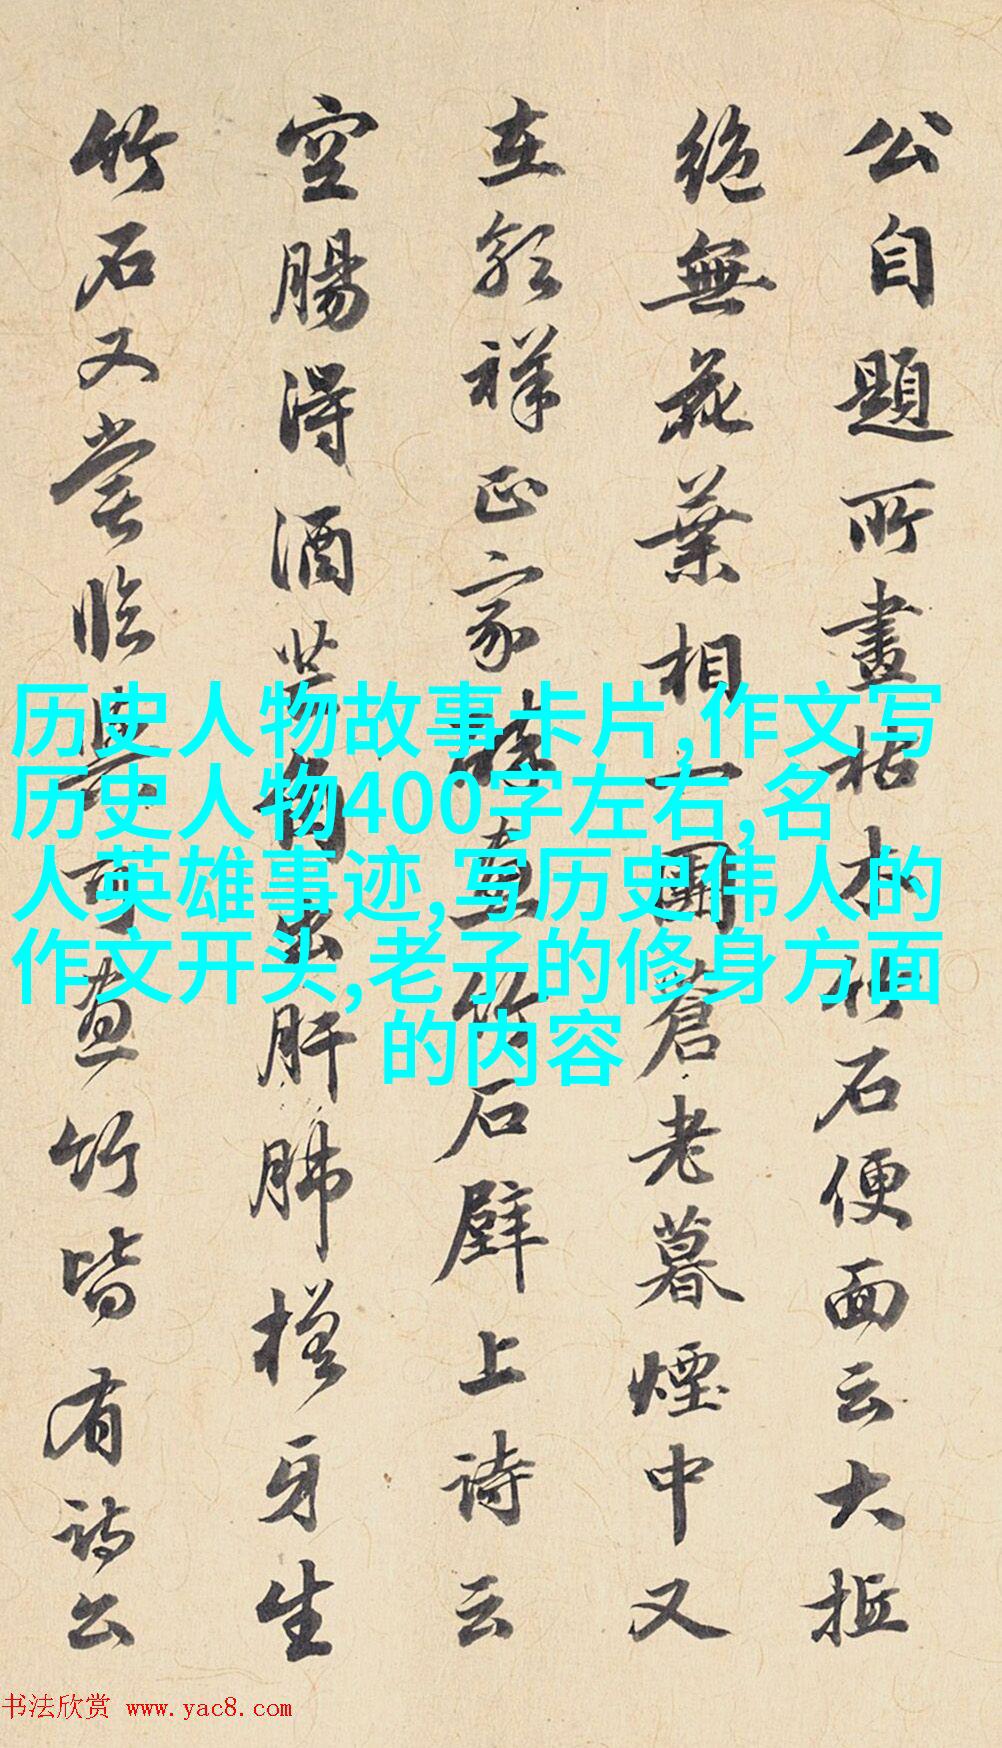 公自題所畫枯木竹石便面云大抵
絶無花葉相一團蒼老暮煙中又
在郭祥正家醉畫竹石壁上詩云
空腸得酒芒角出肝肺槎牙生
竹石又嘗臨與可畫竹皆有詩公
历史人物故事卡片,作文写
历史人物400字左右,名
人英雄事迹,写历史伟人的
作文开头,老子的修身方面
的内容
书法欣赏 www.yac8.com